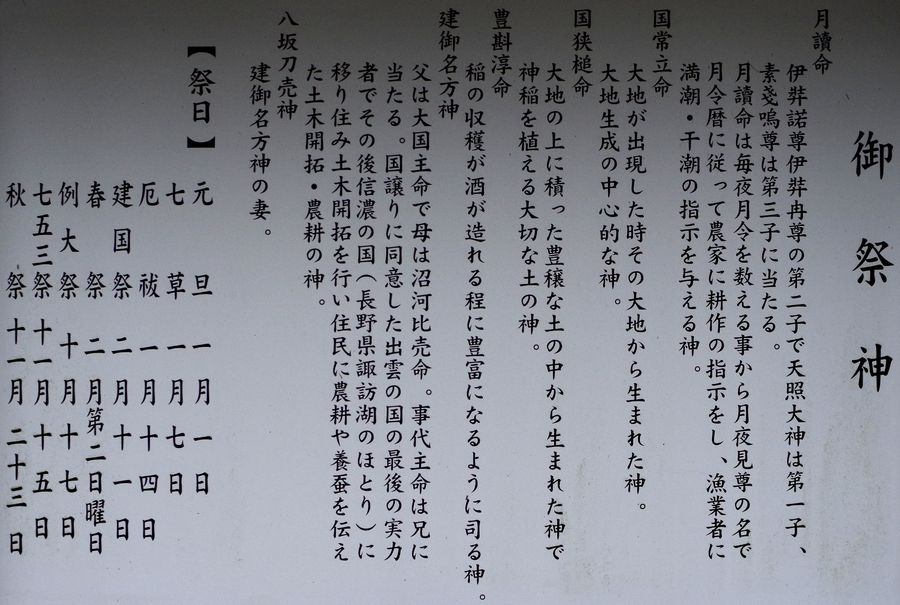 御祭神
月讀命
伊弉諾尊伊弉冉尊の第二子で天照大神は第一子、
素戔嗚尊は第三子に当たる。
月讀命は毎夜月令を数える事から月夜見尊の名で
月令暦に従って農家に耕作の指示をし、漁業者に
満潮・干潮の指示を与える神。
国常立命
大地が出現した時その大地から生まれた神。
大地生成の中心的な神。
国狭槌命
大地の上に積った豊穣な土の中から生まれた神で
神稲を植える大切な土の神。
豊斟渟命
稲の収穫が酒が造れる程に豊富になるように司る神。
建御名方神
父は大国主命で母は沼河比売命。事代主命は兄に
当たる。国譲りに同意した出雲の国の最後の実力
者でその後信濃の国(長野県諏訪湖のほとり)に
移り住み土木開拓を行い住民に農耕や養蚕を伝え
た土木開拓・農耕の神。
八坂刀売神
建御名方神の妻。
【祭日】
元旦 一月一日
七草 一月七日
厄祓 一月十四日
建国祭 二月十一日
春祭 二月第二日曜日
例大祭 十月十七日
七五三祭 十一月十五日
秋祭 十一月二十三日